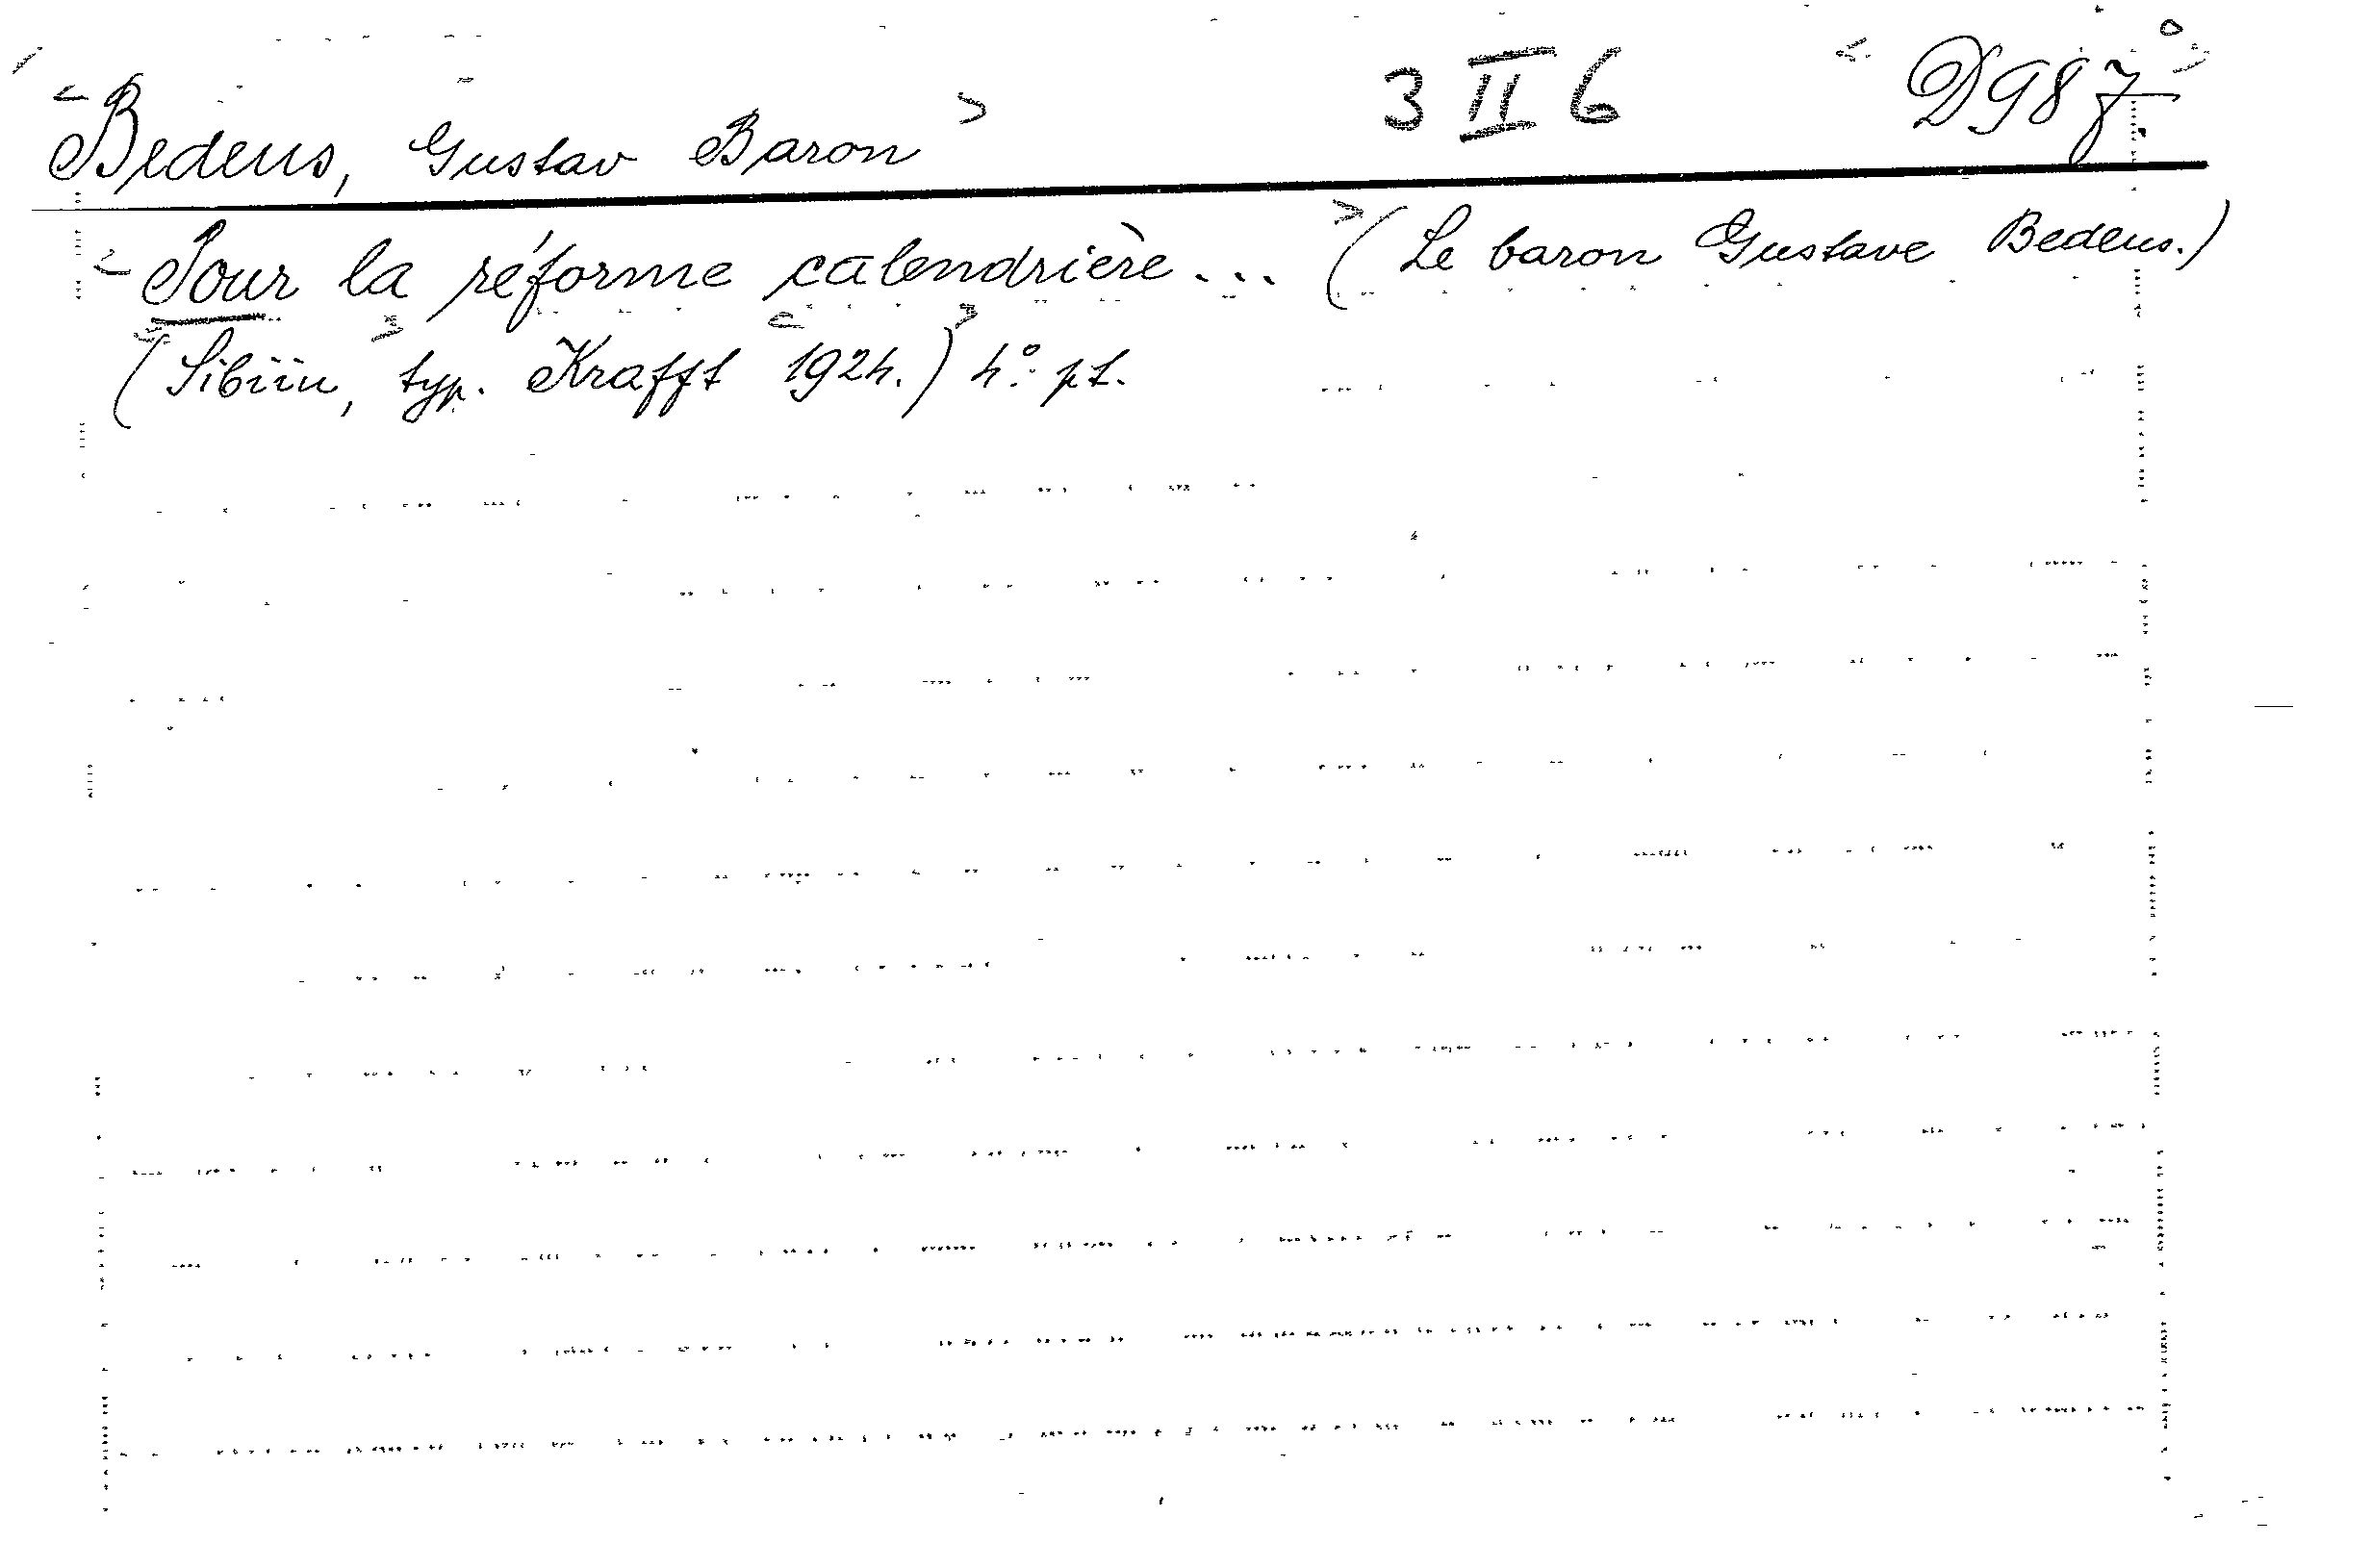 Bedeus, Gustav Baron 3 II 6 D987.
Pour la réforme calendrière... (Le baron Gustave Bedeus.)
(Sibiiu, typ. Krafft 1924.) 4° pt.